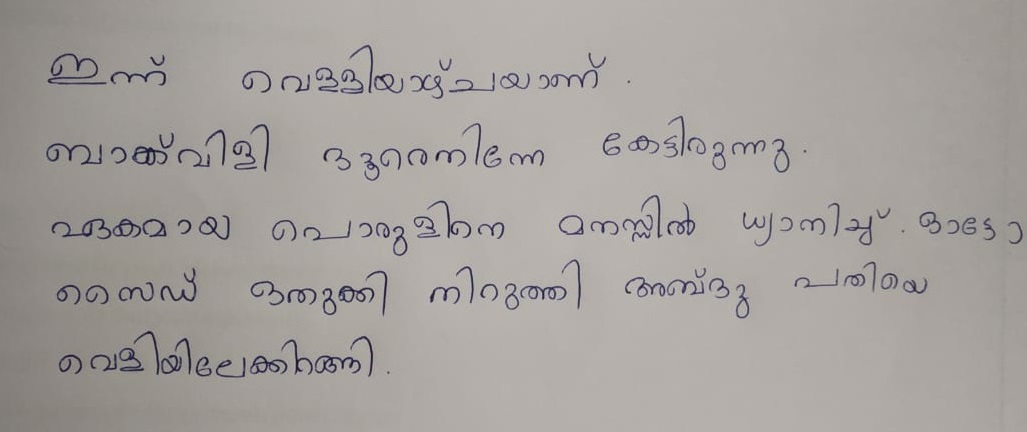 ഇന്ന് വെള്ളിയാഴ്ചയാണ്.
ബാങ്ക്വിളി ദൂരെനിന്നേ കേട്ടിരുന്നു.
ഏകമായ പൊരുളിനെ മനസ്സിൽ ധ്യാനിച്ച്. ഓട്ടോ
സൈഡ് ഒതുക്കി നിറുത്തി അബ്ദു പതിയെ
വെളിയിലേക്കിറങ്ങി.